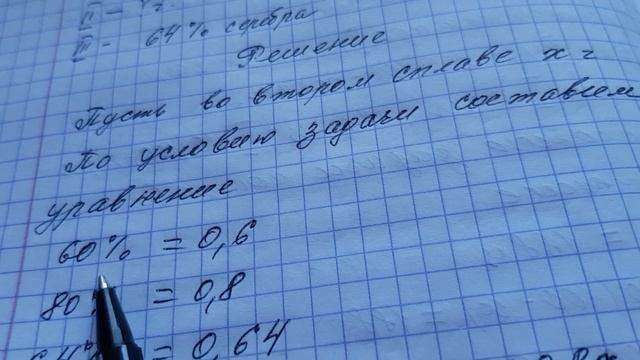 II -
III - 64% серебра
Решение
Пусть во втором сплаве х г
По условию задачи составлем
уравнение
60% = 0,6
80% = 0,8
64% = 0,64